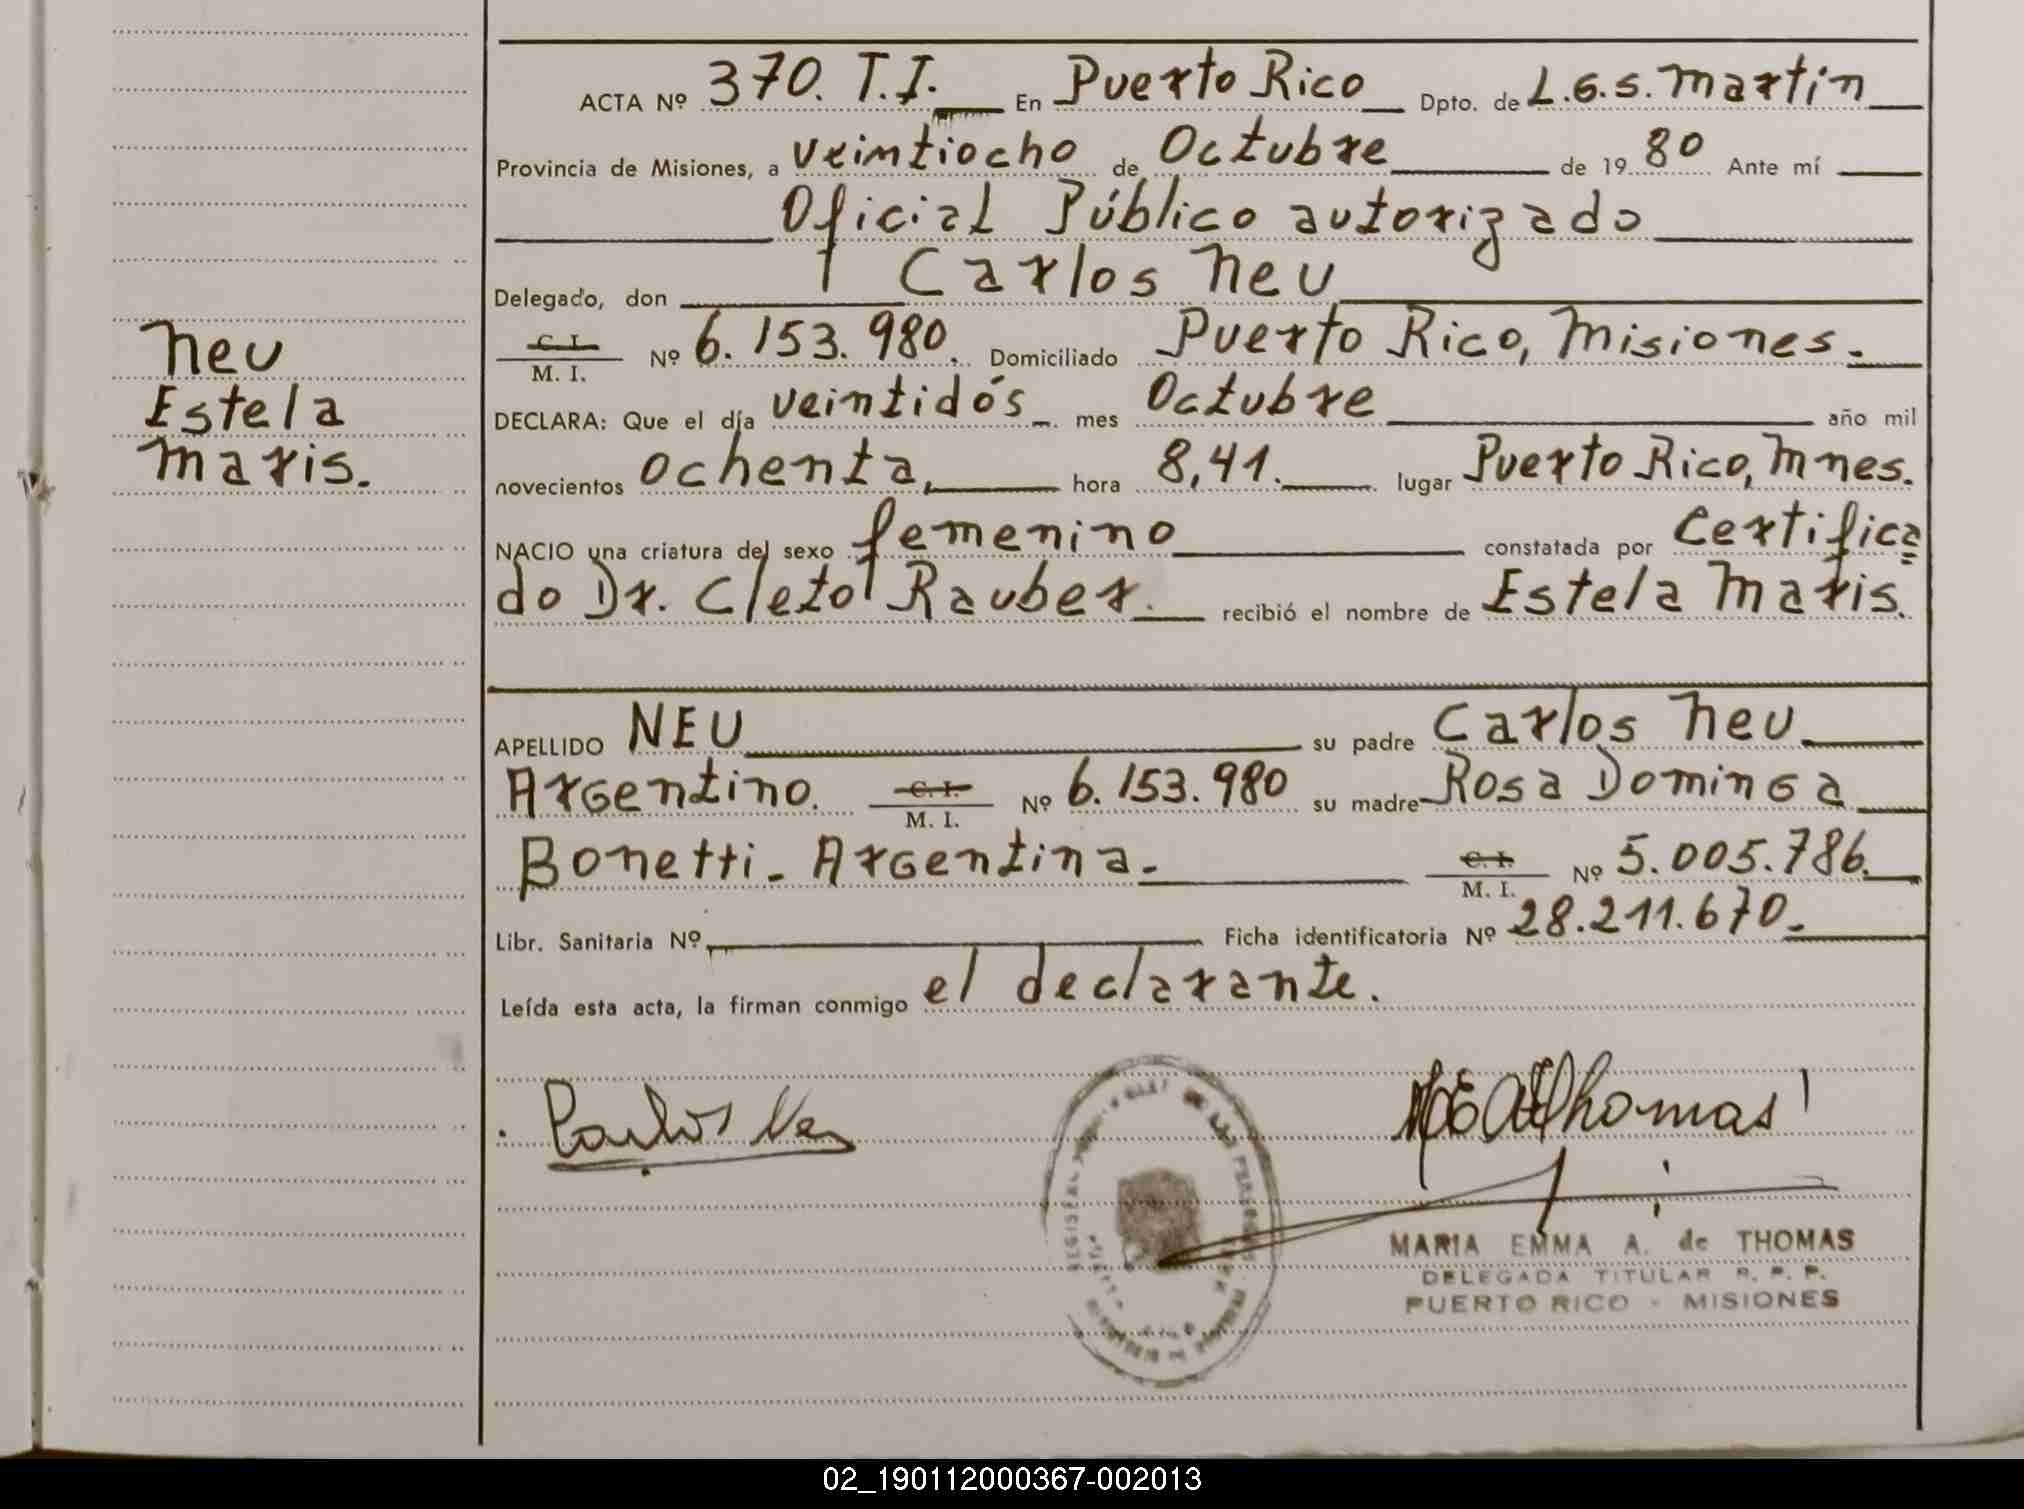 ACTA Nº 370. T.I. En Puerto Rico Dpto. de L.G.S. Martín
Provincia de Misiones, a veintiocho de Octubre de 19 80 Ante mí
Oficial Público autorizado
Delegado, don Carlos Neu
C. I.
M. I. Nº 6.153.980. Domiciliado Puerto Rico, Misiones.
DECLARA: Que el día veintidós mes Octubre año mil
novecientos ochenta, hora 8,41. lugar Puerto Rico, Mnes.
NACIO una criatura del sexo femenino constatada por Certifica
do Dr. Cleto Rauber. recibió el nombre de Estela Maris.
Neu
Estela
Maris.
APELLIDO NEU su padre Carlos Neu
Argentino. C. I. M. I. Nº 6.153.980 su madre Rosa Dominga
Bonetti - Argentina. C. I. M. I. Nº 5.005.786.
Libr. Sanitaria Nº Ficha identificatoria Nº 28.211.670.
Leída esta acta, la firman conmigo el declarante.
Carlos Neu
MARIA EMMA A. de THOMAS
DELEGADA TITULAR R. P. P.
PUERTO RICO - MISIONES
02_190112000367-002013